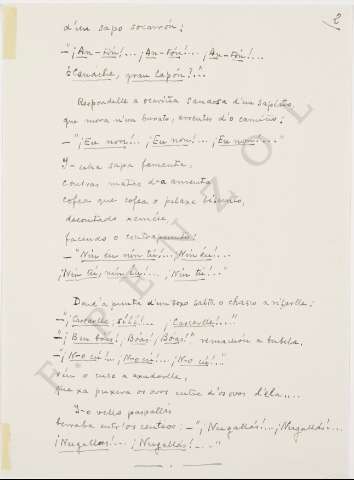 2
d'un sapo socarrón:
—"¡An-tón!... ¡An-tón!... ¡An-tón!...
gran lapón?..."
Respondelle a ocariña saudosa d'un sapiño,
que mora n'un burato, enrentes d'o camiño:
—"¡Eu non!... ¡Eu non!... ¡Eu non!...
I-unha sapa famenta,
contras matas d-a amenta,
cofea que cofea o pelaxe
descontado
facendo o contrapunto:
—"¡Nin eu nin tú!... ¡Nin eu!...
¡Nin tú, nin eu!... ¡Nin tú!..."
Dend'a punta d'un toxo salta o chasco a rifarlle:
—"¡Cascarlle, ¡Cascarlle!..."
—"¡Bon bóas! ¡Bóas! ¡Bóas!" remanicou a bubela.
—"¡N-o cú!... ¡N-o cú!... ¡N-o cú!..."
vén o cuco a axudarlle,
que xa puxera os ovos entre d'os ovos d'ela...
I-o vello paspallás
berraba entr'os centeos: —"¡Nugallás!... ¡Nugallás!...
¡Nugallás!... ¡Nugallás!..."
F. PENZOL